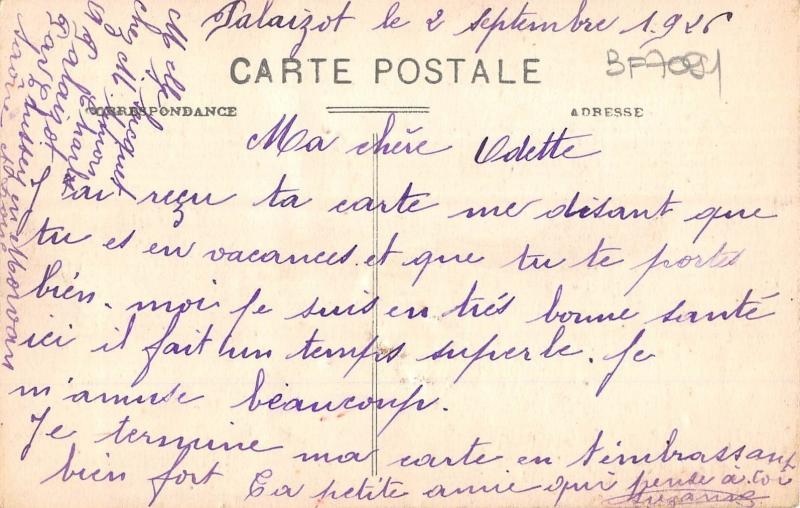 Palaizot le 2 septembre 1926
BF7091
CARTE POSTALE
CORRESPONDANCE
ADRESSE
Ma chère Odette
J'ai reçu ta carte me disant que
tu es en vacances. et que tu te portes
bien. moi je suis en très bonne santé
ici il fait un temps superbe. Je
m'amuse beaucoup.
Je termine ma carte en t'embrassant
bien fort
Ta petite amie qui pense à toi
Suzanne
Melle
chez M.
Palaizot
par
en Morvan